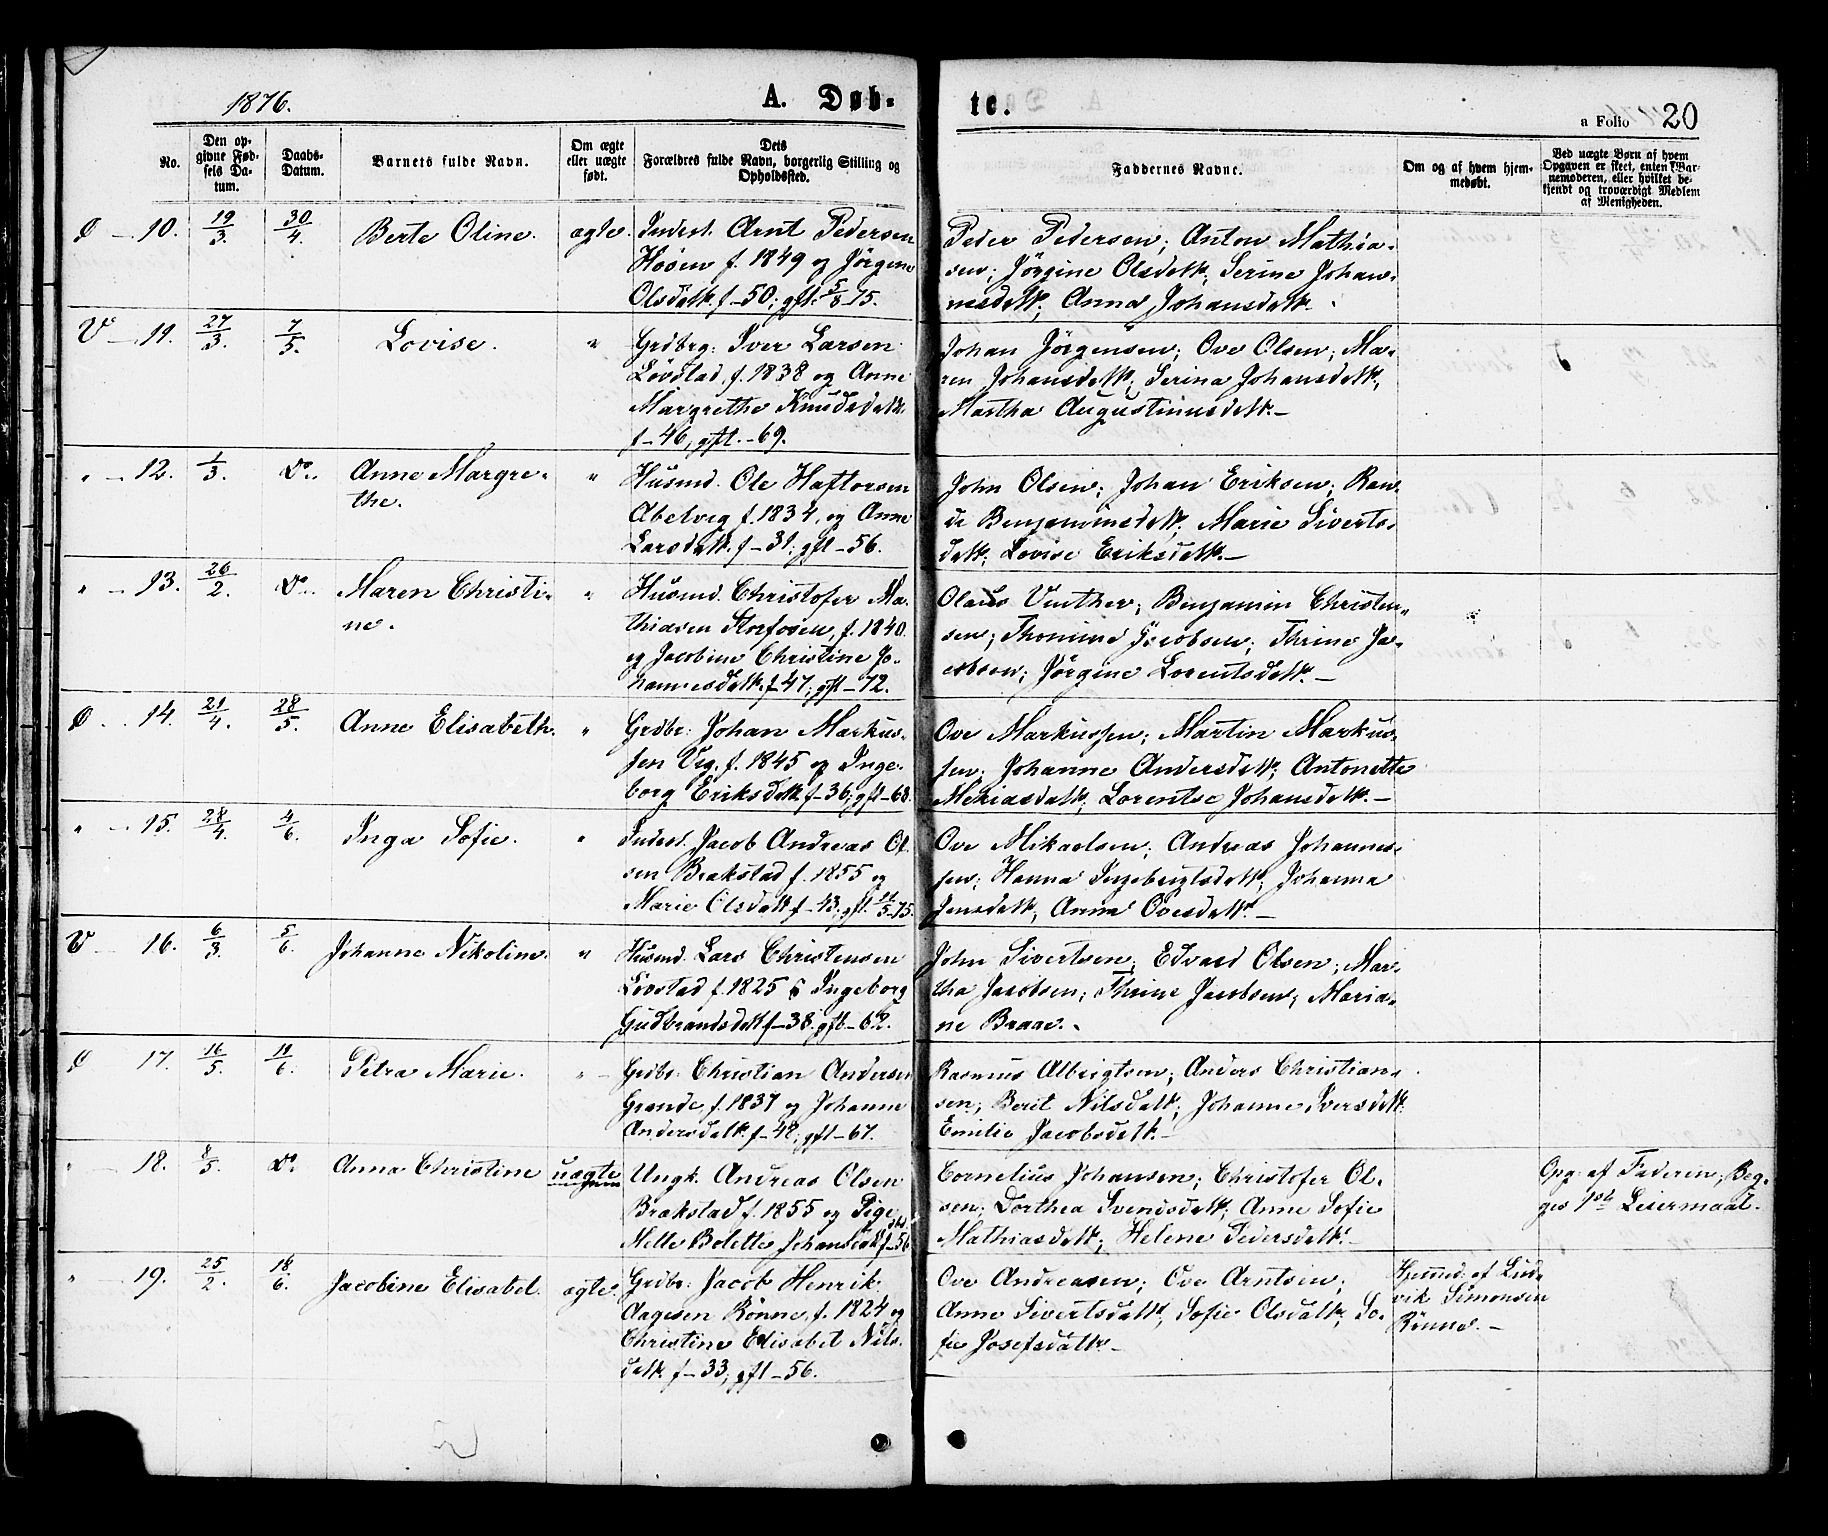 1876.
A. Døb-
te.
a Folio 20
No.
Den op-
givne Fød-
sels Da-
tum.
Daabs-
Datum.
Barnets fulde Navn.
Om ægte
eller uægte
født.
Dets
Forældres fulde Navn, borgerlig Stilling og
Opholdssted.
Faddernes Navne.
Om og af hvem hjem-
medøbt.
Ved uægte Børn af hvem
Opgaven er skeet, enten Bar-
nemoderen, eller hvilket be-
kjendt og troværdigt Medlem
af Menigheden.
10. 19/3. 30/4. Berte Oline. ægte. Inderst. Arnt Pedersen
Hosen f. 1849 og Jørgine
Olsdatt. f–50; gft. 5/8 75.
Peder Pedersen; Anton Mathia-
sen; Jørgine Olsdatt; Serine Johan-
nesdatt; Anna Johansdatt.
V – 11. 27/3. 7/5. Lovise. " Grdbrg. Iver Larsen
Lövstad, f. 1838 og Anne
Margrethe Knudsdatt.
f–46, gft.–69.
Johan Jörgensen; Ove Olsen; Ma-
ren Johansdatt; Serina Johansdatt,
Martha Augustinusdatt.–
" – 12. 1/3. Do. Anne Margre-
the. " Husmd. Ole Haftorsen
Abelveg f. 1834, og Anne
Larsdatt. f–31; gft–56.
John Olsen; Johan Eriksen; Ran-
di Benjaminsdatt, Marie Siverts-
datt; Lovise Eriksdatt.–
" – 13. 26/2. Do. Maren Christi-
ne. " Husmd. Christofer Ma-
thiasen Storfosen, f. 1840.
og Jacobine Christine Jo-
hannesdatt. f–47; gft–72.
Olaus Vinther; Benjamin Christen-
sen; Thomine Jacobsen; Thrine Ja-
cobsen; Jørgine Lorentsdatt.–
14. 21/4. 28/5. Anne Elisabeth. " Grdbr. Johan Markus-
sen Veg, f. 1845 og Inge-
borg Eriksdatt f–36; gft–68.
Ove Markussen; Martin Markus-
sen; Johanne Andersdatt; Antonette
Mekiasdatt, Lorentse Johansdatt.–
" – 15. 28/4. 4/6. Inga Sofie. " Inderst. Jacob Andreas Ol-
sen Brakstad f. 1855 og
Marie Olsdatt f–43; gft.
Ove Mikaelsen; Andreas Johannes-
sen; Hanna Ingebrigtsdatt; Johanna
Jensdatt, Anna Ovesdatt.–
V – 16. 6/3. 5/6. Johanne Nikoline. " Husmd. Lars Christensen
Lövstad f. 1825 & Ingeborg
Gudbrandsdatt f–38. gft–62.
John Sivertsen; Edvard Olsen; Mar-
tha Jacobsen; Thrine Jacobsen; Maria-
ne Braae.
17. 16/5. 11/6. Petra Marie. " Grdbr. Christian Andersen
Grande, f. 1837 og Johanne
Andersdatt. f–42; gft–67.
Rasmus Albrigtsen; Anders Christian-
sen; Berit Nilsdatt; Johanne Iversdatt.
Emilie Jacobsdatt.–
" – 18. 8/5. Do. Anna Christine uægte Ungk. Andreas Olsen
Brakstad f. 1855 og Pige
Mette Bolette Johansdatt f–56
Cornelius Johansen; Christofer Ol-
sen; Dorthea Svendsdatt; Anne Sofie
Mathiasdatt; Helene Pedersdatt.–
Opg. af Faderen; Beg-
ges 1ste Leiermaal.
" – 19. 25/2. 18/6. Jacobine Elisabet. ægte. Grdbr. Jacob Henrik
Aagesen Rönne, f. 1824 og
Christine Elisabet Nils-
datt. f–33; gft–56.
Ove Andreasen; Ove Arntsen;
Anne Sivertsdatt, Sofie Olsdatt, So-
fie Josefsdatt.–
Hjemmd. af Lud-
vik Simonsen
Rönne.–